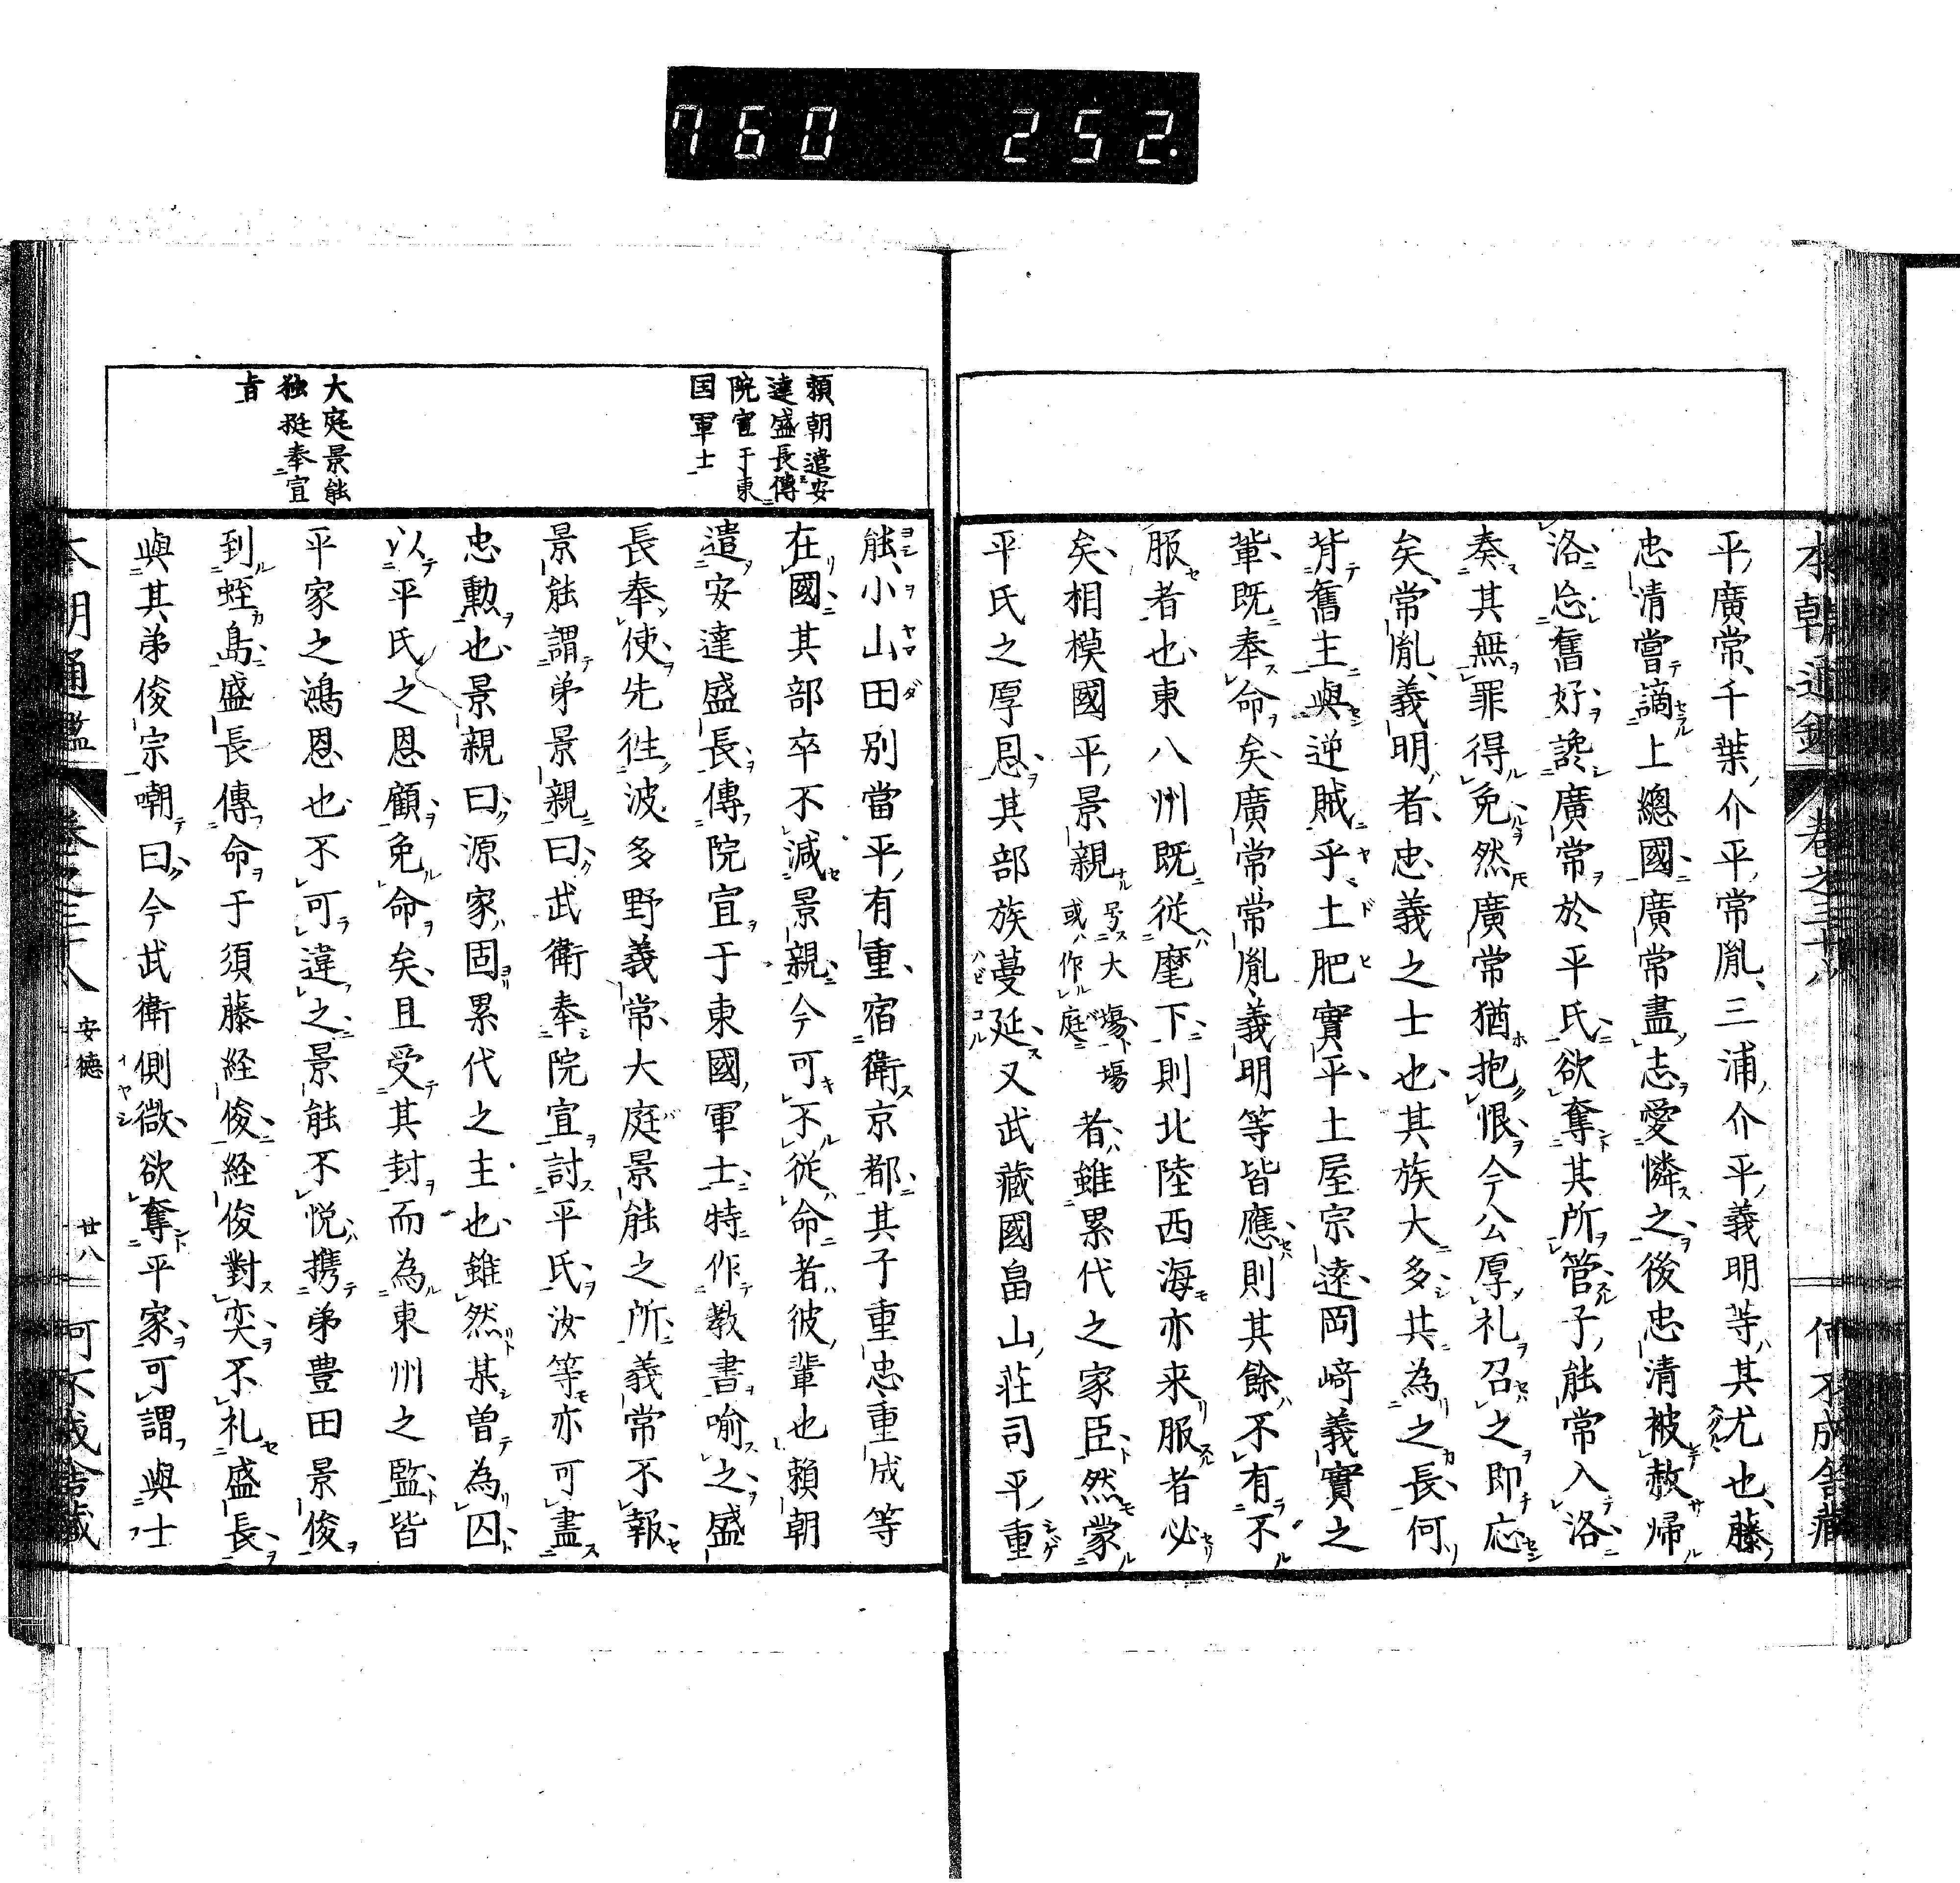 760 252.
本朝通鑑 卷之三十八 仲不成舍藏
平廣常千葉介平常胤三浦介平義明等其尤也藤
忠清嘗謫上總國廣常盡志愛憐之後忠清被赦帰
洛忘舊好讒廣常於平氏欲奪其所管子能常入洛
奏其無罪得免然廣常猶抱恨今公厚礼召之即応
矣常胤義明者忠義之士也其族大多共為之長何
背舊主與逆賊乎土肥實平土屋宗遠岡﨑義實之
輩既奉命矣廣常常胤義明等皆應則其餘不有不
服者也東八州既従麾下則北陸西海亦来服者必
矣相模國平景親号大塲塲或作庭者雖累代之家臣然蒙
平氏之厚恩其部族蔓延又武藏國畠山荘司平重
頼朝遣安
達盛長傳
院宣于東
国軍士
大庭景能
独挺奉宣
旨
能小山田別當平有重宿衛京都其子重忠重成等
在國其部卒不減景親今可不従命者彼輩也頼朝
遣安達盛長傳院宣于東國軍士特作教書喻之盛
長奉使先徃波多野義常大庭景能之所義常不報
景能謂弟景親曰武衛奉院宣討平氏汝等亦可盡
忠勲也景親曰源家固累代之主也雖然某曽為囚
以平氏之恩顧免命矣且受其封而為東州之監皆
平家之鴻恩也不可違之景能不悦携弟豊田景俊
到蛭島盛長傳命于須藤経俊経俊對奕不礼盛長
與其弟俊宗嘲曰今武衛側微欲奪平家可謂與士
本朝通鑑 卷之三十八 安德 廿八